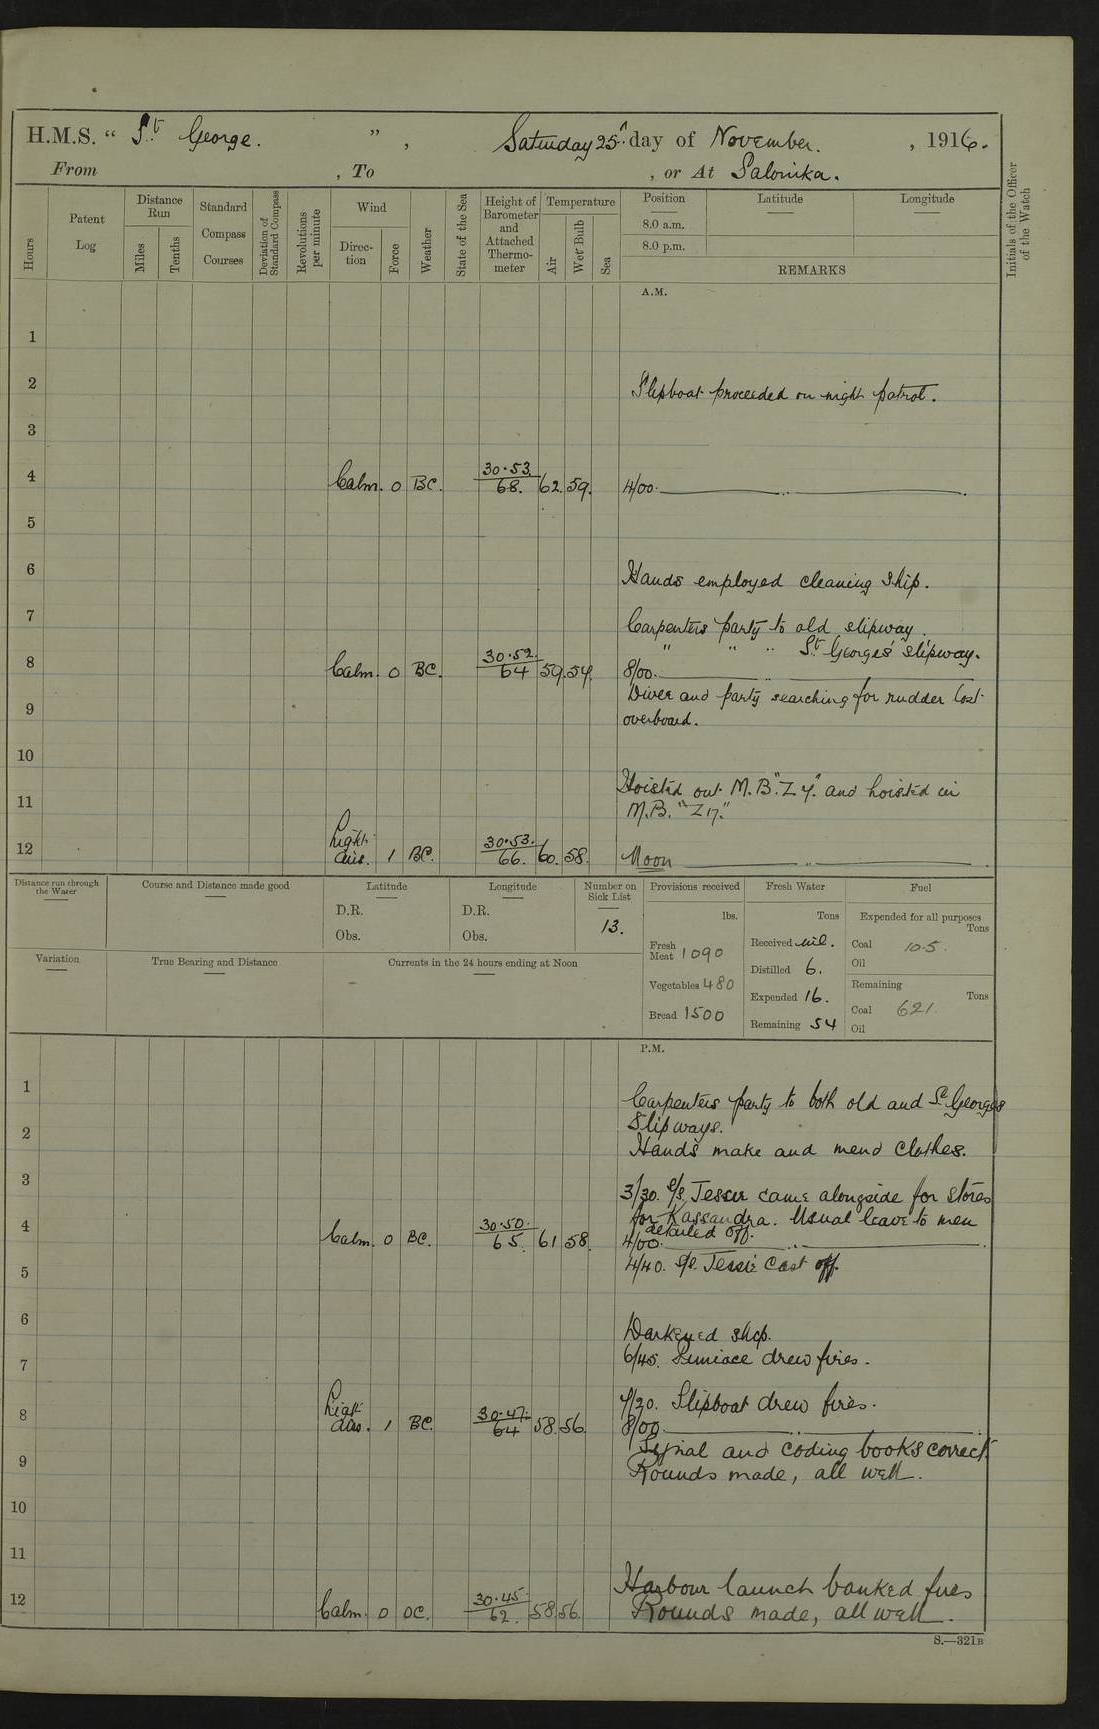 H.M.S. “ St George. ”, Saturday 25th day of November. , 1916.
From , To , or At Salonika.
Hours
Patent Log
Distance Run
Miles
Tenths
Standard Compass Courses
Deviation of Standard Compass
Revolutions per minute
Wind
Direction
Force
Weather
State of the Sea
Height of Barometer and Attached Thermometer
Temperature
Air
Wet Bulb
Sea
Position
Latitude
Longitude
8.0 a.m.
8.0 p.m.
REMARKS
Initials of the Officer of the Watch
A.M.
1
2 Slipboat proceeded on night patrol.
3
4 Calm. 0 BC. 30.53. 68. 62. 59. 4/00. ..
5
6 Hands employed cleaning ship.
7 Carpenters party to old slipway.
" " " St Georges' slipway.
8 Calm. 0 BC. 30.52. 64 59. 54. 8/00. ..
Diver and party searching for rudder lost
9 overboard.
10
Hoisted out M.B. "Z 4". and hoisted in
11 M.B. "Z 17."
12 Light airs. 1 BC. 30.53. 66. 60. 58. Noon ..
Distance run through the Water
Course and Distance made good
Latitude
D.R.
Obs.
Longitude
D.R.
Obs.
Number on Sick List
13.
Provisions received
lbs.
Fresh Meat 1090
Vegetables 480
Bread 1500
Fresh Water
Tons
Received nil.
Distilled 6.
Expended 16.
Remaining 54
Fuel
Expended for all purposes
Tons
Coal 10.5.
Oil
Remaining
Tons
Coal 621.
Oil
Variation
True Bearing and Distance
Currents in the 24 hours ending at Noon
P.M.
1 Carpenters party to both old and St Georges
2 Slipways.
Hands make and mend clothes.
3 3/30. S/S. Jessie came alongside for stores
for Kassandra. Usual leave to men
detailed off.
4 Calm. 0 BC. 30.50. 65. 61 58. 4/00. ..
5 4/40. S/S. Jessie Cast off.
6 Darkened ship.
7 6/45. drew fires.
7/20. Slipboat drew fires.
8 Light airs. 1 BC. 30.47. 64 58. 56. 8/00. ..
Signal and coding books correct.
9 Rounds made, all well.
10
11
Harbour launch banked fires
12 Calm. 0 OC. 30.45. 62. 58. 56. Rounds made, all well.
S.—321B